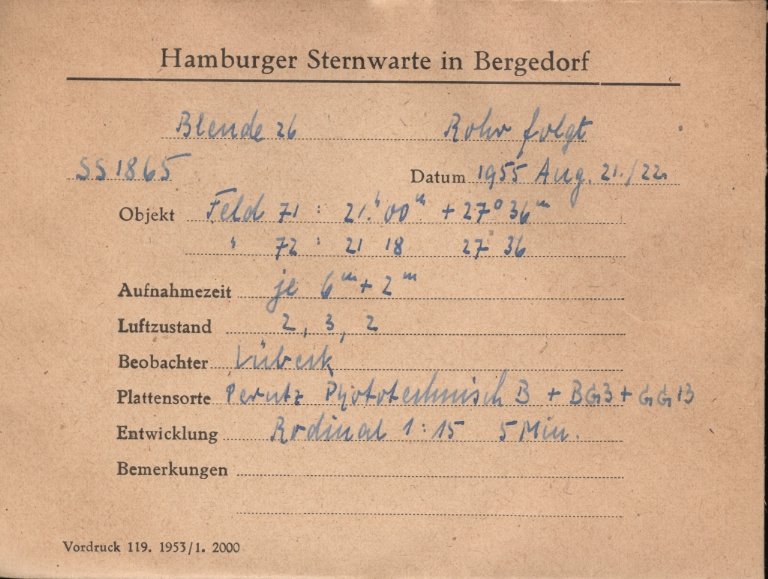 Hamburger Sternwarte in Bergedorf
Blende 26 Rohr folgt
SS1865 Datum 1955 Aug. 21./22.
Objekt Feld 71 : 21.ʰ00ᵐ +27° 36ᵐ
" 72 : 21 18 27° 36
Aufnahmezeit je 6ᵐ + 2ᵐ
Luftzustand 2, 3, 2
Beobachter Lübeck
Plattensorte Perutz Phototechnisch B + BG3 + GG13
Entwicklung Rodinal 1:15 5 Min.
Bemerkungen
Vordruck 119. 1953/1. 2000